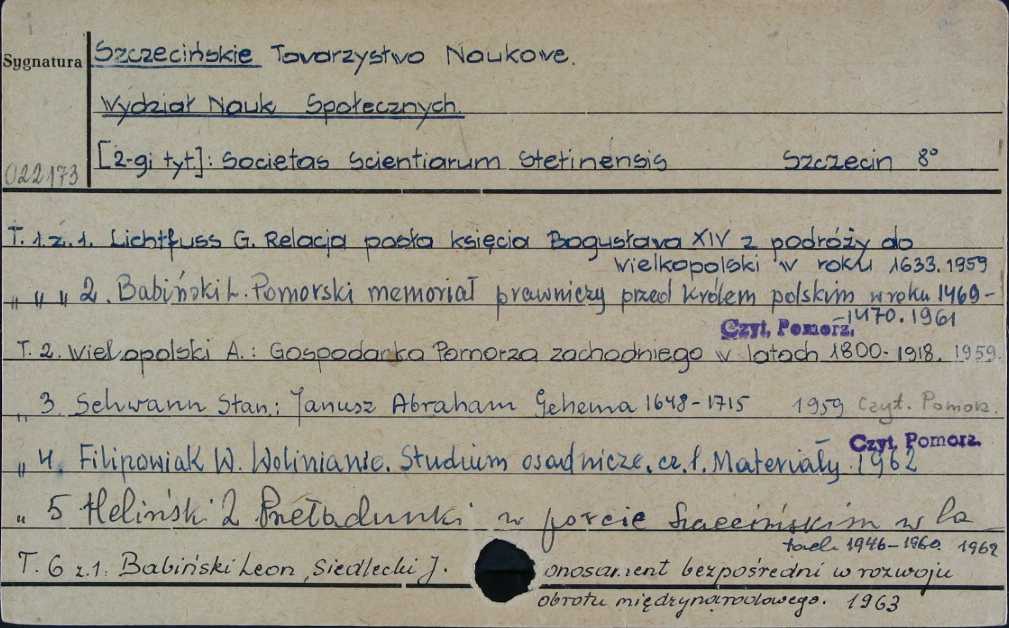 Szczecińskie Towarzystwo Naukowe.
Sygnatura
Wydział Nauk Społecznych.
[2-gi tyt]: Societas Scientiarum Stetinensis Szczecin 8°
022173
T. 1. z. 1. Lichtfuss G. Relacja posła księcia Bogusława XIV z podróży do
Wielkopolski w roku 1633. 1959
„ „ „ 2. Babiński L. Pomorski memoriał prawniczy przed Królem polskim w roku 1469-
-1470. 1961
Czyt. Pomorz.
T. 2. Wielopolski A.: Gospodarka Pomorza zachodniego w latach 1800-1918. 1959.
„ 3. Sehwann Stan: Janusz Abraham Gehema 1648-1715 1959 Czyt. Pomorz.
Czyt. Pomorz.
„ 4. Filipowiak W. Wolinianie. Studium osadnicze. cz. 1. Materiały 1962
„ 5 Heliński Z Przeładunki w porcie szczecińskim w la
tach 1946-1960. 1962
T. 6 z.1: Babiński Leon, Siedlecki J. onosament bezpośredni w rozwoju
obrotu międzynarodowego. 1963